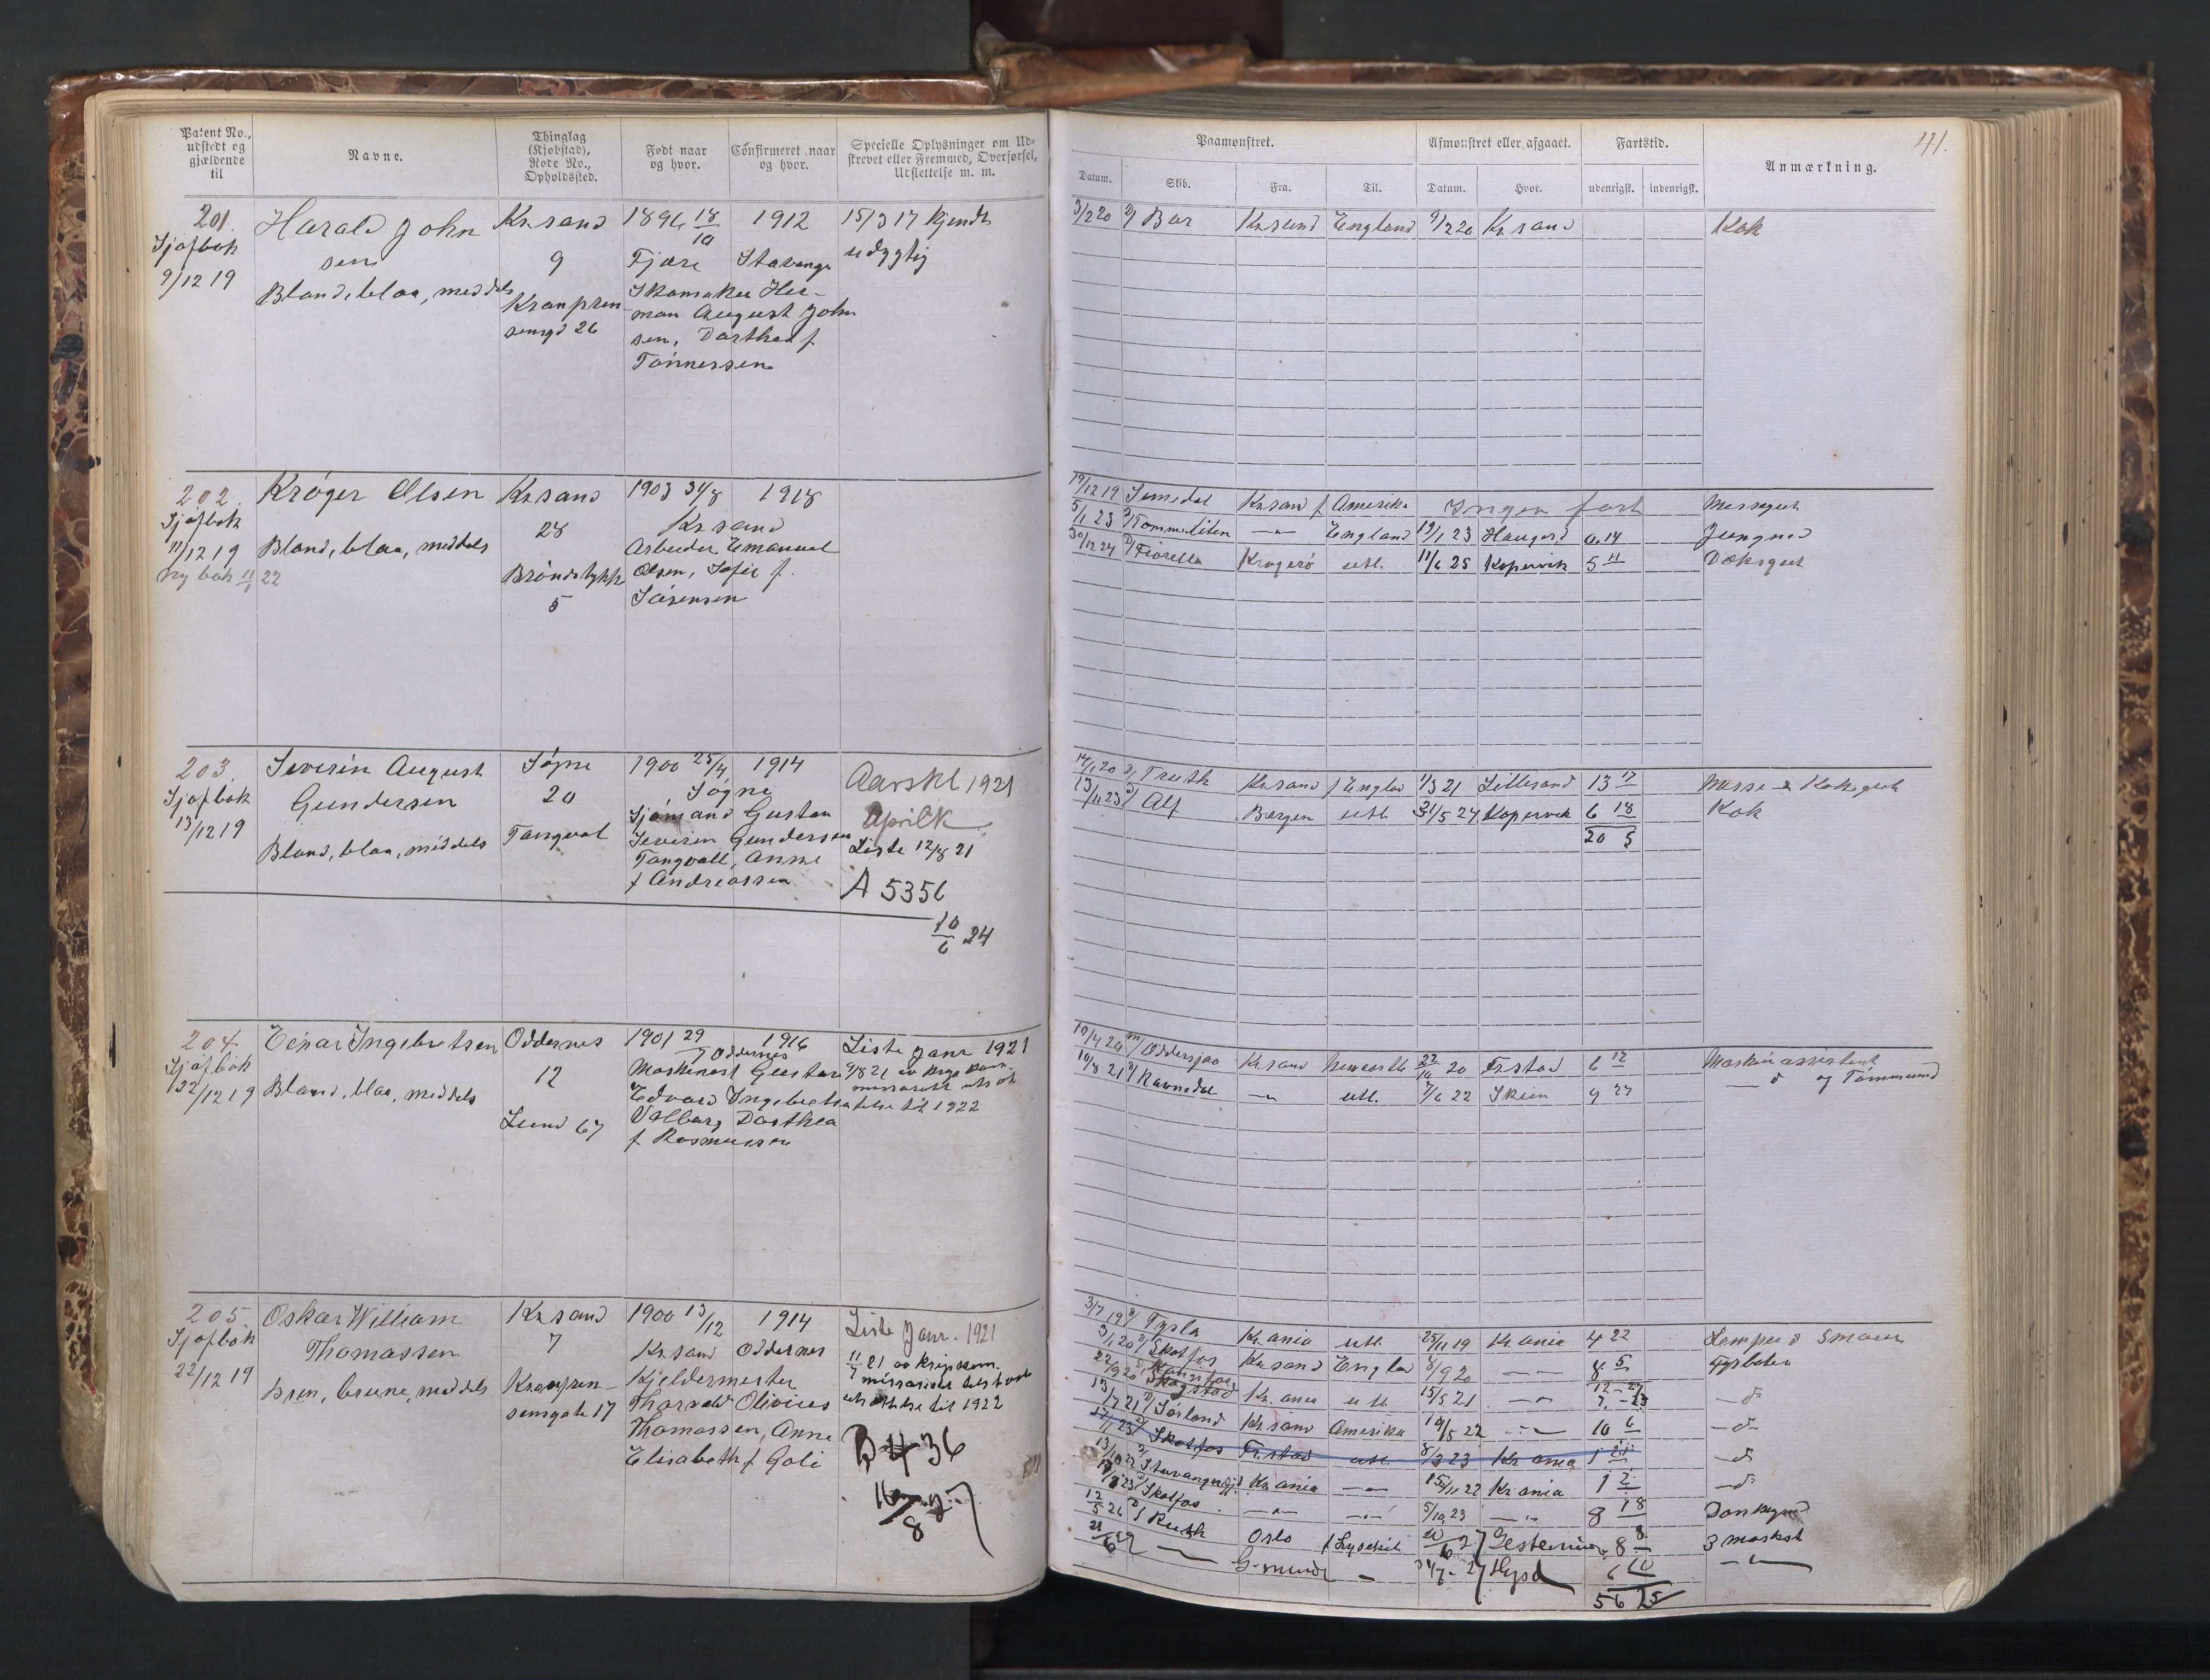 Patent No., udstedt og gjældende til
Navne.
Thinglag (Kjøbstad), Rode No., Opholdssted.
Født naar og hvor.
Confirmeret naar og hvor.
Specielle Oplysninger om Udstrevet eller Fremmed, Overførsel, Udslettelse m. m.
Paamønstret.
Afmønstret eller afgaaet.
Fartstid.
Anmærkning.
41.
Datum.
Skib.
Fra.
Til.
Datum.
Hvor.
udenrigsk.
indenrigsk.
201.
Sjøfbok
9/12 19
Harald John
sen
Blond, blaa, middels
Kr.sand
9
Kronprin
sensgd 26
1896 18/10
Fjære
Skomaker Her-
man August John
sen, Dorthea f.
Tønnessen
1912
Stavange
15/3 17 kjendt
udygtig
3/2 20 D/ Bar Kr.sand England 9/2 20 Kr.sand
Kok
202.
Sjøfbok
11/12 19
Ny bok 11/1 22
Krøger Olsen
Blond, blaa, middels
Kr.sand
28
Brøndstykk
5
1903 31/8 1918
Kr.sand
Arbeider Emanuel
Olsen, Sofie f.
Sørensen
19/12 19 Songdal Kr.sand f Amerika Ingen fart Messegut
5/1 23 D/ Tommeliten —"— England 19/1 23 Haugesd 0.14 Jungmd
30/12 24 D/ Fiorella Kragerø utl. 11/6 25 Kopervik 5 11 Dæksgut
203.
Sjøfbok
13/12 19
Severin August
Gundersen
Blond, blaa, middels
Søgne
20
Tangval
1900 25/4 1914
Søgne
Sjømand Gustav
Severin Gundersen
Tangvall, Anne
f Andreassen
Aarskl 1921
Aprilk
Liste 12/8 21
A 5356
10/6 24
14/1 20 D/ Truth Kr.sand f Englad 1/3 21 Lillesand 13 17 Messe & Koksgut
13/11 23 D/ Alf Bergen utl. 31/5 24 Kopervik 6 18 Kok
20 5
204.
Sjøfbok
22/12 19
Einar Ingebretsen
Blond, blaa, middels
Oddernes
12
Lund 67
1901 29/7 1916
Oddernes
Maskinist Gustav
Edvard Ingebretsen
Valborg Dorthea
f. Rasmussen
Liste Janr 1921
9/8 21 av krgs kom-
missariatet utsat
telse til 1922
19/4 20 M/ Oddersjaa Kr.sand Newcastle 22/10 20 Fr.stad 6 12 Maskinassistent
10/8 21 D/ Ravnedal —"— utl. 7/6 22 Skien 9 27 —d— og Tømmermd
205.
Sjøfbok
22/12 19
Oskar William
Thomassen
Brun, brune, middels
Kr.sand
7
Kronprin-
sensgate 17
1900 13/12 1914
Kr.sand Oddernes
Kjeldermester
Thorvald Olivius
Thomassen, Anne
Elisabeth f Goli
Liste Janr. 1921
11/7 21 av krigskom.
missariatet tilstaaet
utsættelse til 1922
B 436
16/8 27
3/7 19 D/ Tysla Kr.ania utl. 25/11 19 Kr.ania 4 22 Lemper & Smører
3/1 20 D/ Skotfos Kr.sand Englad 8/9 20 —"— 8 5 Fyrbøter
12-27
22/9 20 D/ Skogstad Kr.ania utl 15/5 21 —"— 7.-23 —d—
13/7 21 D/ Sørland Kr.sand Amerika 19/5 22 —"— 10 6 —d—
Skotfos Fr.stad utl. 8/3 23 Kr.ania 1 21 —d—
13/10 22 D/ Stavangerfjd. Kr.ania —"— 15/11 22 Kr.ania 1 2 —d—
Skotfos —"— —"— 5/10 23 —"— 8 18 Donkeymd
12/5 26 D/ Ruth Oslo f Lysekil 27 8 8 3 maskst
—"— G.munde — 27 Hgsd 6 10 —"—
56 25